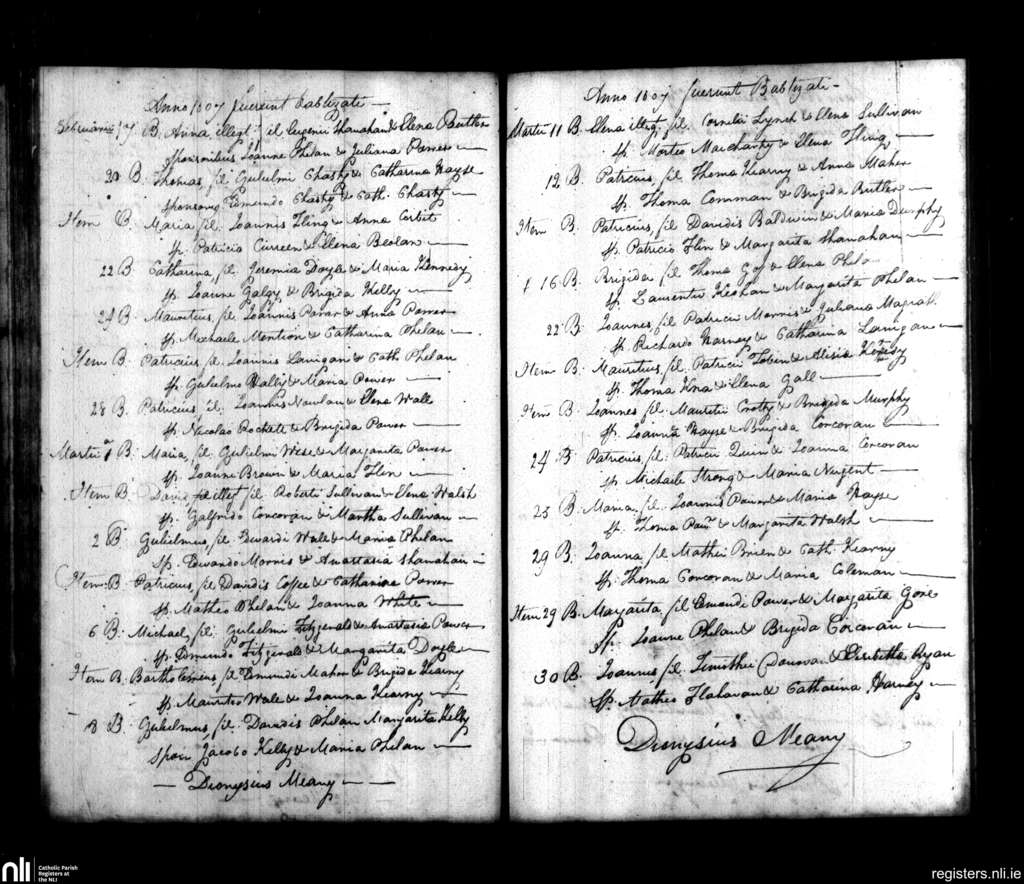 Anno 1807 fuerunt Bablizati —
B. Anna illegt. fil Eugenii Shanahan & Elena Butler
sponsoribus Joanne Phelan & Juliana Power —
20 B. Thomas, fil Gulielmi Chasty & Catharina Nayse
sponsorus Edmundo Chasty & Cath. Chasty —
Item B. Maria fil. Joannis Fling & Anna Corbit
sp. Patricio Curreen & Elena Beolan —
22 B. Catharina, fil. Jeremia Doyle & Maria Kennedy
sp. Joanne Galgy & Brigida Kelly —
24 B. Mauritius, fil. Joannis Power & Anna Power
sp. Michaele Montion & Catharina Phelan —
Item B. Patricius, fil. Joannis Lanigan & Cath. Phelan
sp. Gulielmo Wally & Maria Power —
28 B. Patricius, fil. Joannis Nowlan & Elena Wall
sp. Nicolao Rochett & Brigida Power —
Martii 1 B. Maria, fil. Gulielmi Wise & Margarita Power
sp. Joanne Brown & Maria Flin —
Item B. David illegt fil. Roberti Sullivan & Elena Walsh
sp. Galfrido Corcoran & Martha Sullivan —
2 B. Gulielmus, fil. Edwardi Wall & Maria Phelan
sp. Edwardo Morris & Anastasia Shanahan —
Item B. Patricius, fil. Davidis Coffee & Catharina Power
sp. Matheo Phelan & Joanna White —
6 B. Michael, fil. Gulielmi Fitzgerald & Anastasia Power
sp. Edmundo Fitzgerald & Margarita Doyle —
Item B. Bartholomeus, fil. Edmundi Maher & Brigida Kearny
sp. Mauritio Wall & Joanna Kearny —
8 B. Gulielmus, fil. Davidis Phelan Margarita Kelly
spon Jacobo Kelly & Maria Phelan —
— Dionysius Meany —
Anno 1807 fuerunt Bablizati —
Martii 11 B. Elena illegt. fil. Cornelii Lynch & Elena Sullivan
sp. Morteo & Elena Fling —
12 B. Patricius, fil. Thoma Kearny & Anna Maher
sp. Thoma Comman & Brigida Butler —
Item B. Patricius, fil. Davidis Baldwin & Maria Dunphy
sp. Patricio Flin & Margarita Shanahan —
16 B. Brigida fil Thoma Goj & Elena
sp. Laurentio & Margarita Phelan —
22 B. Joannes, fil. Patricii Morris & Juliana Magrath
sp. Richardo Harney & Catharina Lanigan —
Item B. Mauritius, fil. Patricii Tobin & Alisia
sp. Thoma & Elena Gall —
Item B. Joannes fil. Mauritii Crotty & Brigida Murphy
sp. Joanna Nayse & Brigida Corcoran —
24 B. Patricius, fil. Patricii Quin & Joanna Corcoran
sp. Michaele Strong & Maria Nugent —
25 B. Maria, fil. Joannis Power & Maria Nayse
sp. Thoma & Margarita Walsh —
29 B. Joanna, fil Mathei Brien & Cath. Kearny
sp. Thoma Corcoran & Maria Coleman —
Item 29 B. Margarita, fil Edmundi Power & Margarita Gore
sp. Joanne Phelan & Brigida Corcoran —
30 B. Joannes, fil. Timothei Donovan & Elisabetha Ryan
sp. Matheo Flahavan & Catharina Harney —
Dionysius Meany
nli
Catholic Parish
Registers at
the NLI
registers.nli.ie